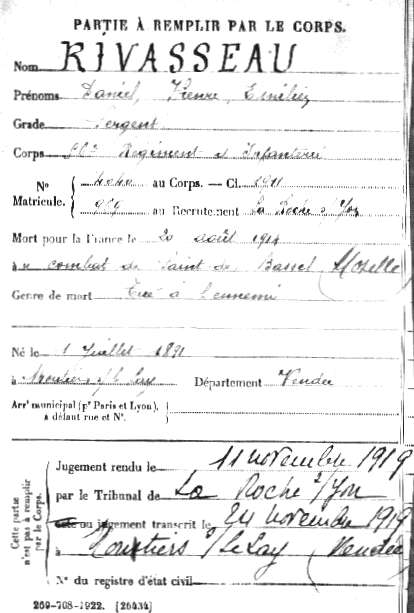 PARTIE À REMPLIR PAR LE CORPS.
Nom RIVASSEAU
Prénoms Daniel, Pierre,
Grade Sergent
Corps Régiment d'Infanterie
Nº Matricule. au Corps. — Cl. 1911
969 au Recrutement La Roche s/Yon
Mort pour la France le 20 août 1914
au combat de (Moselle)
Genre de mort Tué à l'ennemi
Né le 1 Juillet 1891
à Moutiers s/le Lay Département Vendée
Arrᵗ municipal (pʳ Paris et Lyon),
à défaut rue et Nº.
Cette partie n'est pas à remplir par le Corps.
Jugement rendu le 11 novembre 1919
par le Tribunal de La Roche s/Yon
acte ou jugement transcrit le 24 novembre 1919
à Moutiers s/Le Lay (Vendée
Nº du registre d'état civil
269-708-1922. [26434]